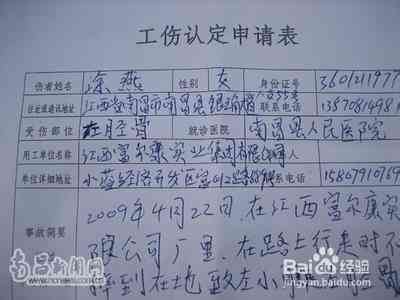 工伤认定申请表
伤者姓名 涂燕 性别 女 身份证号 3601211977
住址或通讯地址 江西省南昌市南昌县 联系电话 1387081498
受伤部位 左胫骨 就诊医院 南昌县人民医院
用工单位名称 江西富尔康实业集团有限公司
单位详细地址 小蓝经济开发区富山 联系电话 15867910769
事故简要 2009年4月22日,在江西富尔康实
限公司厂里,在路上行走时不
摔到在地,致左小
南昌新闻网
Baidu百度经验